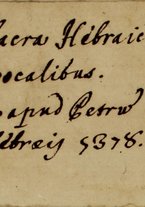 acra Hebraic
ocalibus.
apud Petrū
ebreis 5378.